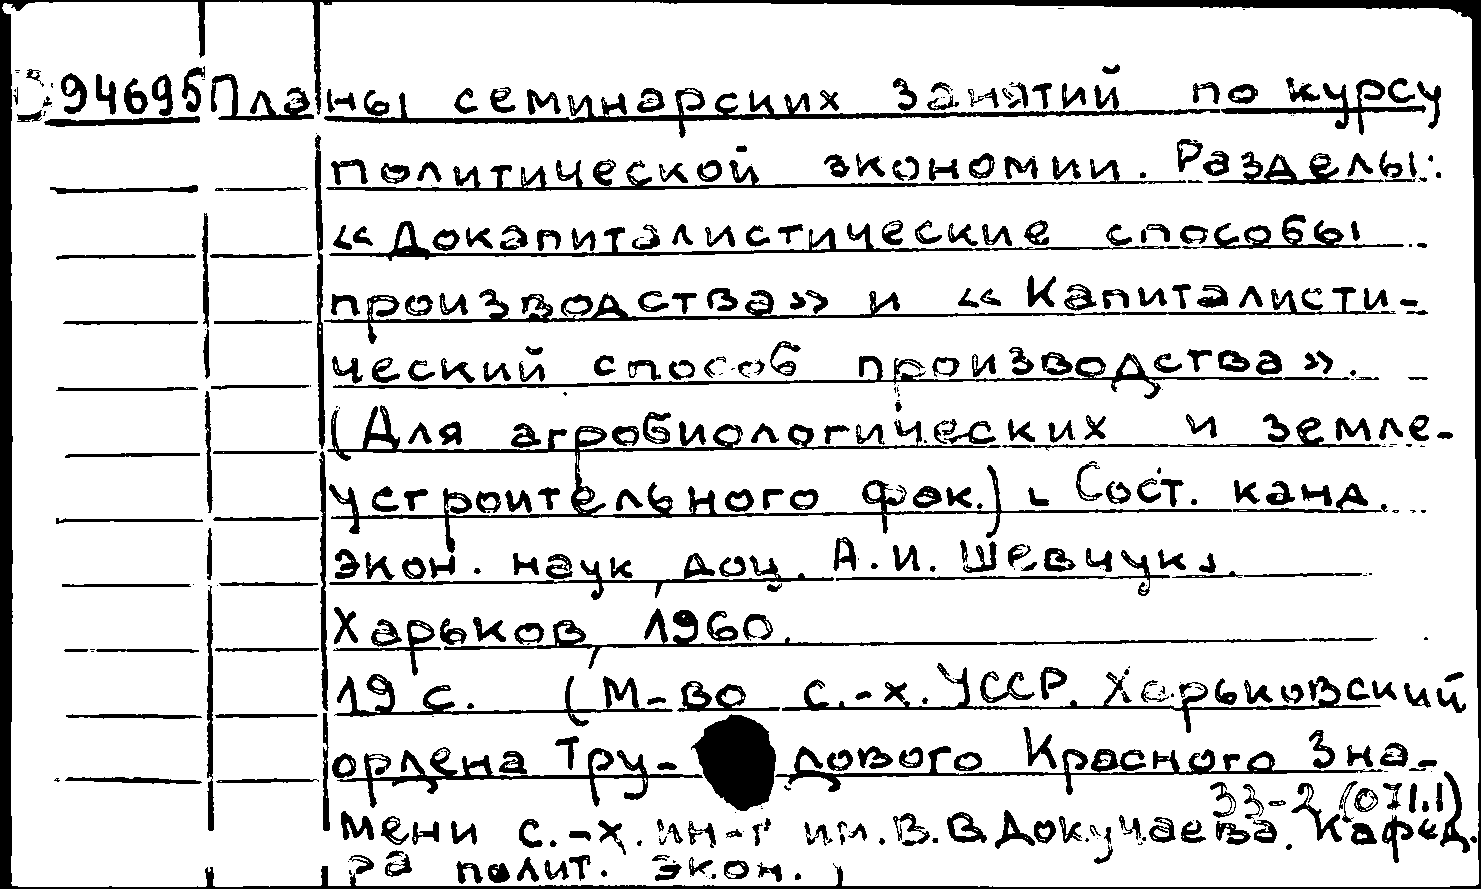 94695 Планы семинарских занятий по курсу
политической экономии. Разделы:
«Докапиталистические способы
производства» и «Капиталисти-
ческий способ производства».
(Для агробиологических и земле-
устроительного фак.). Сост. канд.
экон. наук, доц. А.И. Шевчук.
Харьков, 1960.
19 с. (М-во с.-х. УССР. Харьковский
ордена Тру- дового Красного Зна-
33-2 (071.1)
мени с.-х. ин-т им. В.В. Докучаева. Кафед.
ра полит. экон.)